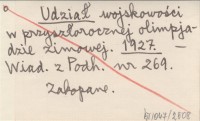 Udział wojskowości
w przyszłorocznej olimpja-
dzie zimowej. 1927. —
Wiad. z Podh. nr 269.
Zakopane.